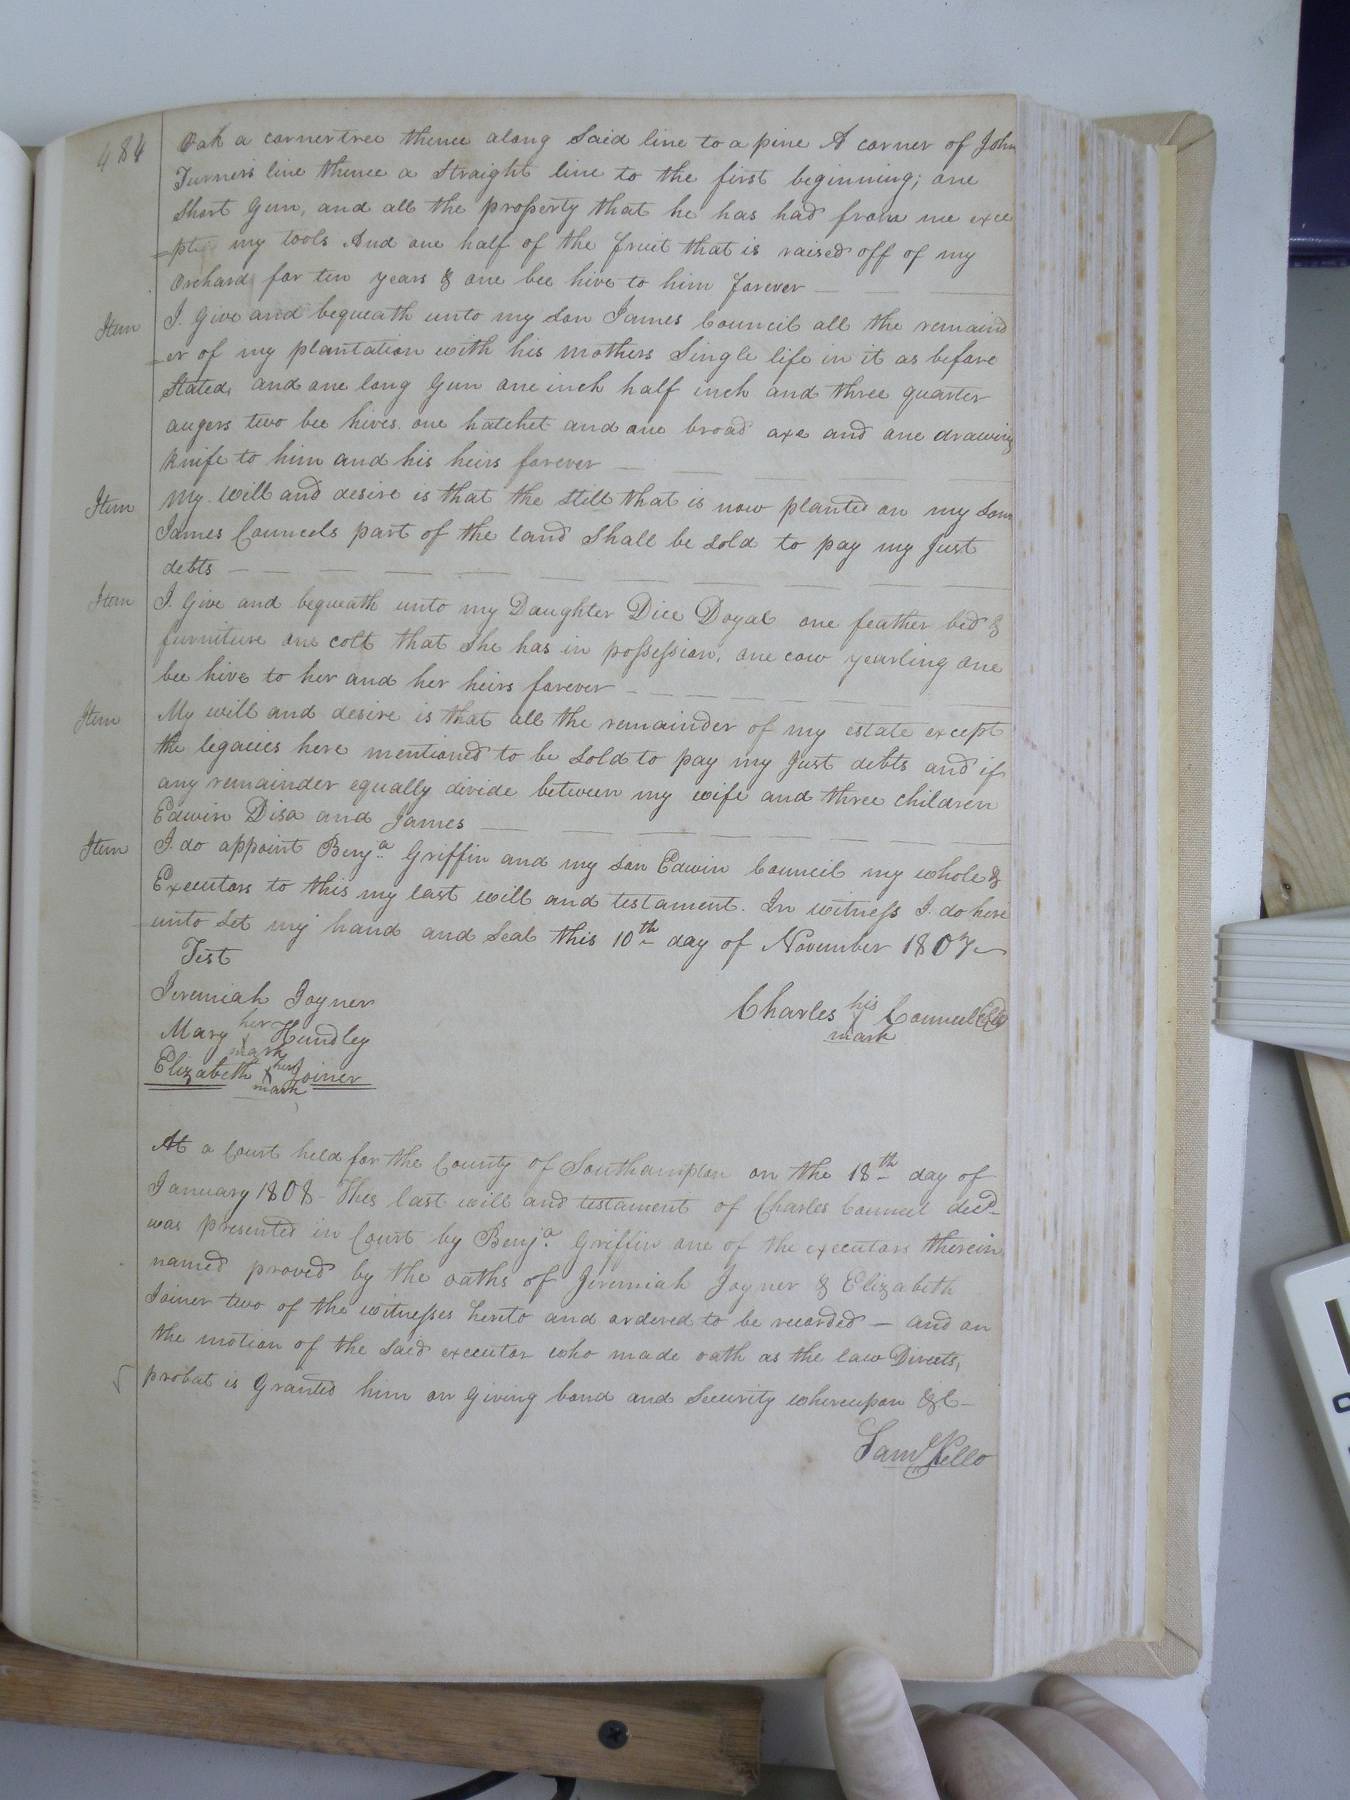 484
Oak a cornertree thence along Said line to a pine A corner of John
Turners line thence a Straight line to the first beginning; one
Short Gun, and all the property that he has had from me exce
=pt my tools And one half of the fruit that is raised off of my
Orchard for ten years & one bee hive to him forever
Item I Give and bequeath unto my Son James Council all the remaind
=er of my plantation with his mothers Single life in it as before
Stated, and one long Gun one inch half inch and three quarter
augers two bee hives one hatchet and one broad axe and one drawing
knife to him and his heirs forever
Item My will and desire is that the Still that is now planted on my Sons
James Councels part of the land Shall be Sold to pay my Just
debts
Item I Give and bequeath unto my Daughter Dice Doyal one feather bed &
furniture one colt that She has in possession, one cow yearling one
bee hive to her and her heirs forever
Item My will and desire is that all the remainder of my estate except
the legacies here mentioned to be Sold to pay my Just debts and if
any remainder equally divide between my wife and three children
Edwin Disa and James
Item I do appoint Benja Griffin and my Son Edwin Council my whole &
Executors to this my last will and testament. In witness I do here
unto Set my hand and Seal this 10th day of November 1807
Test
Jeremiah Joyner
Charles his X mark Council
Mary her X mark Hundley
Elizabeth her X mark Joiner
At a Court held for the County of Southampton on the 18th day of
January 1808 This last will and testament of Charles Council decd
was presented in Court by Benja Griffin one of the executors therein
named proved by the oaths of Jeremiah Joyner & Elizabeth
Joiner two of the witnesses hereto and ordered to be recorded — and on
the motion of the Said executor who made oath as the law Directs,
probat is Granted him on Giving bond and Security whereupon &C
Saml Kello